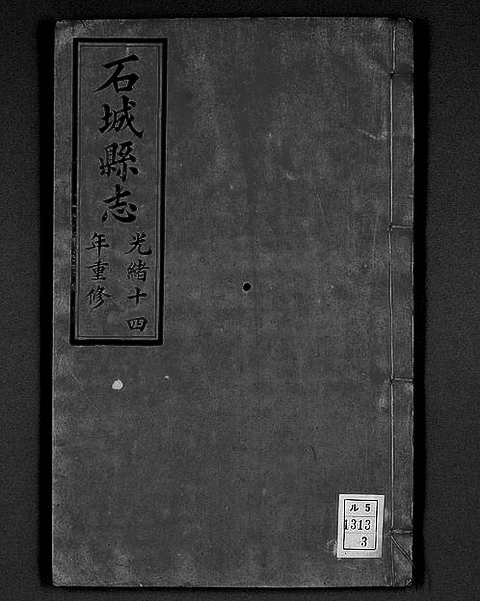 石城縣志
光緒十四
年重修
ル 5
1313
3